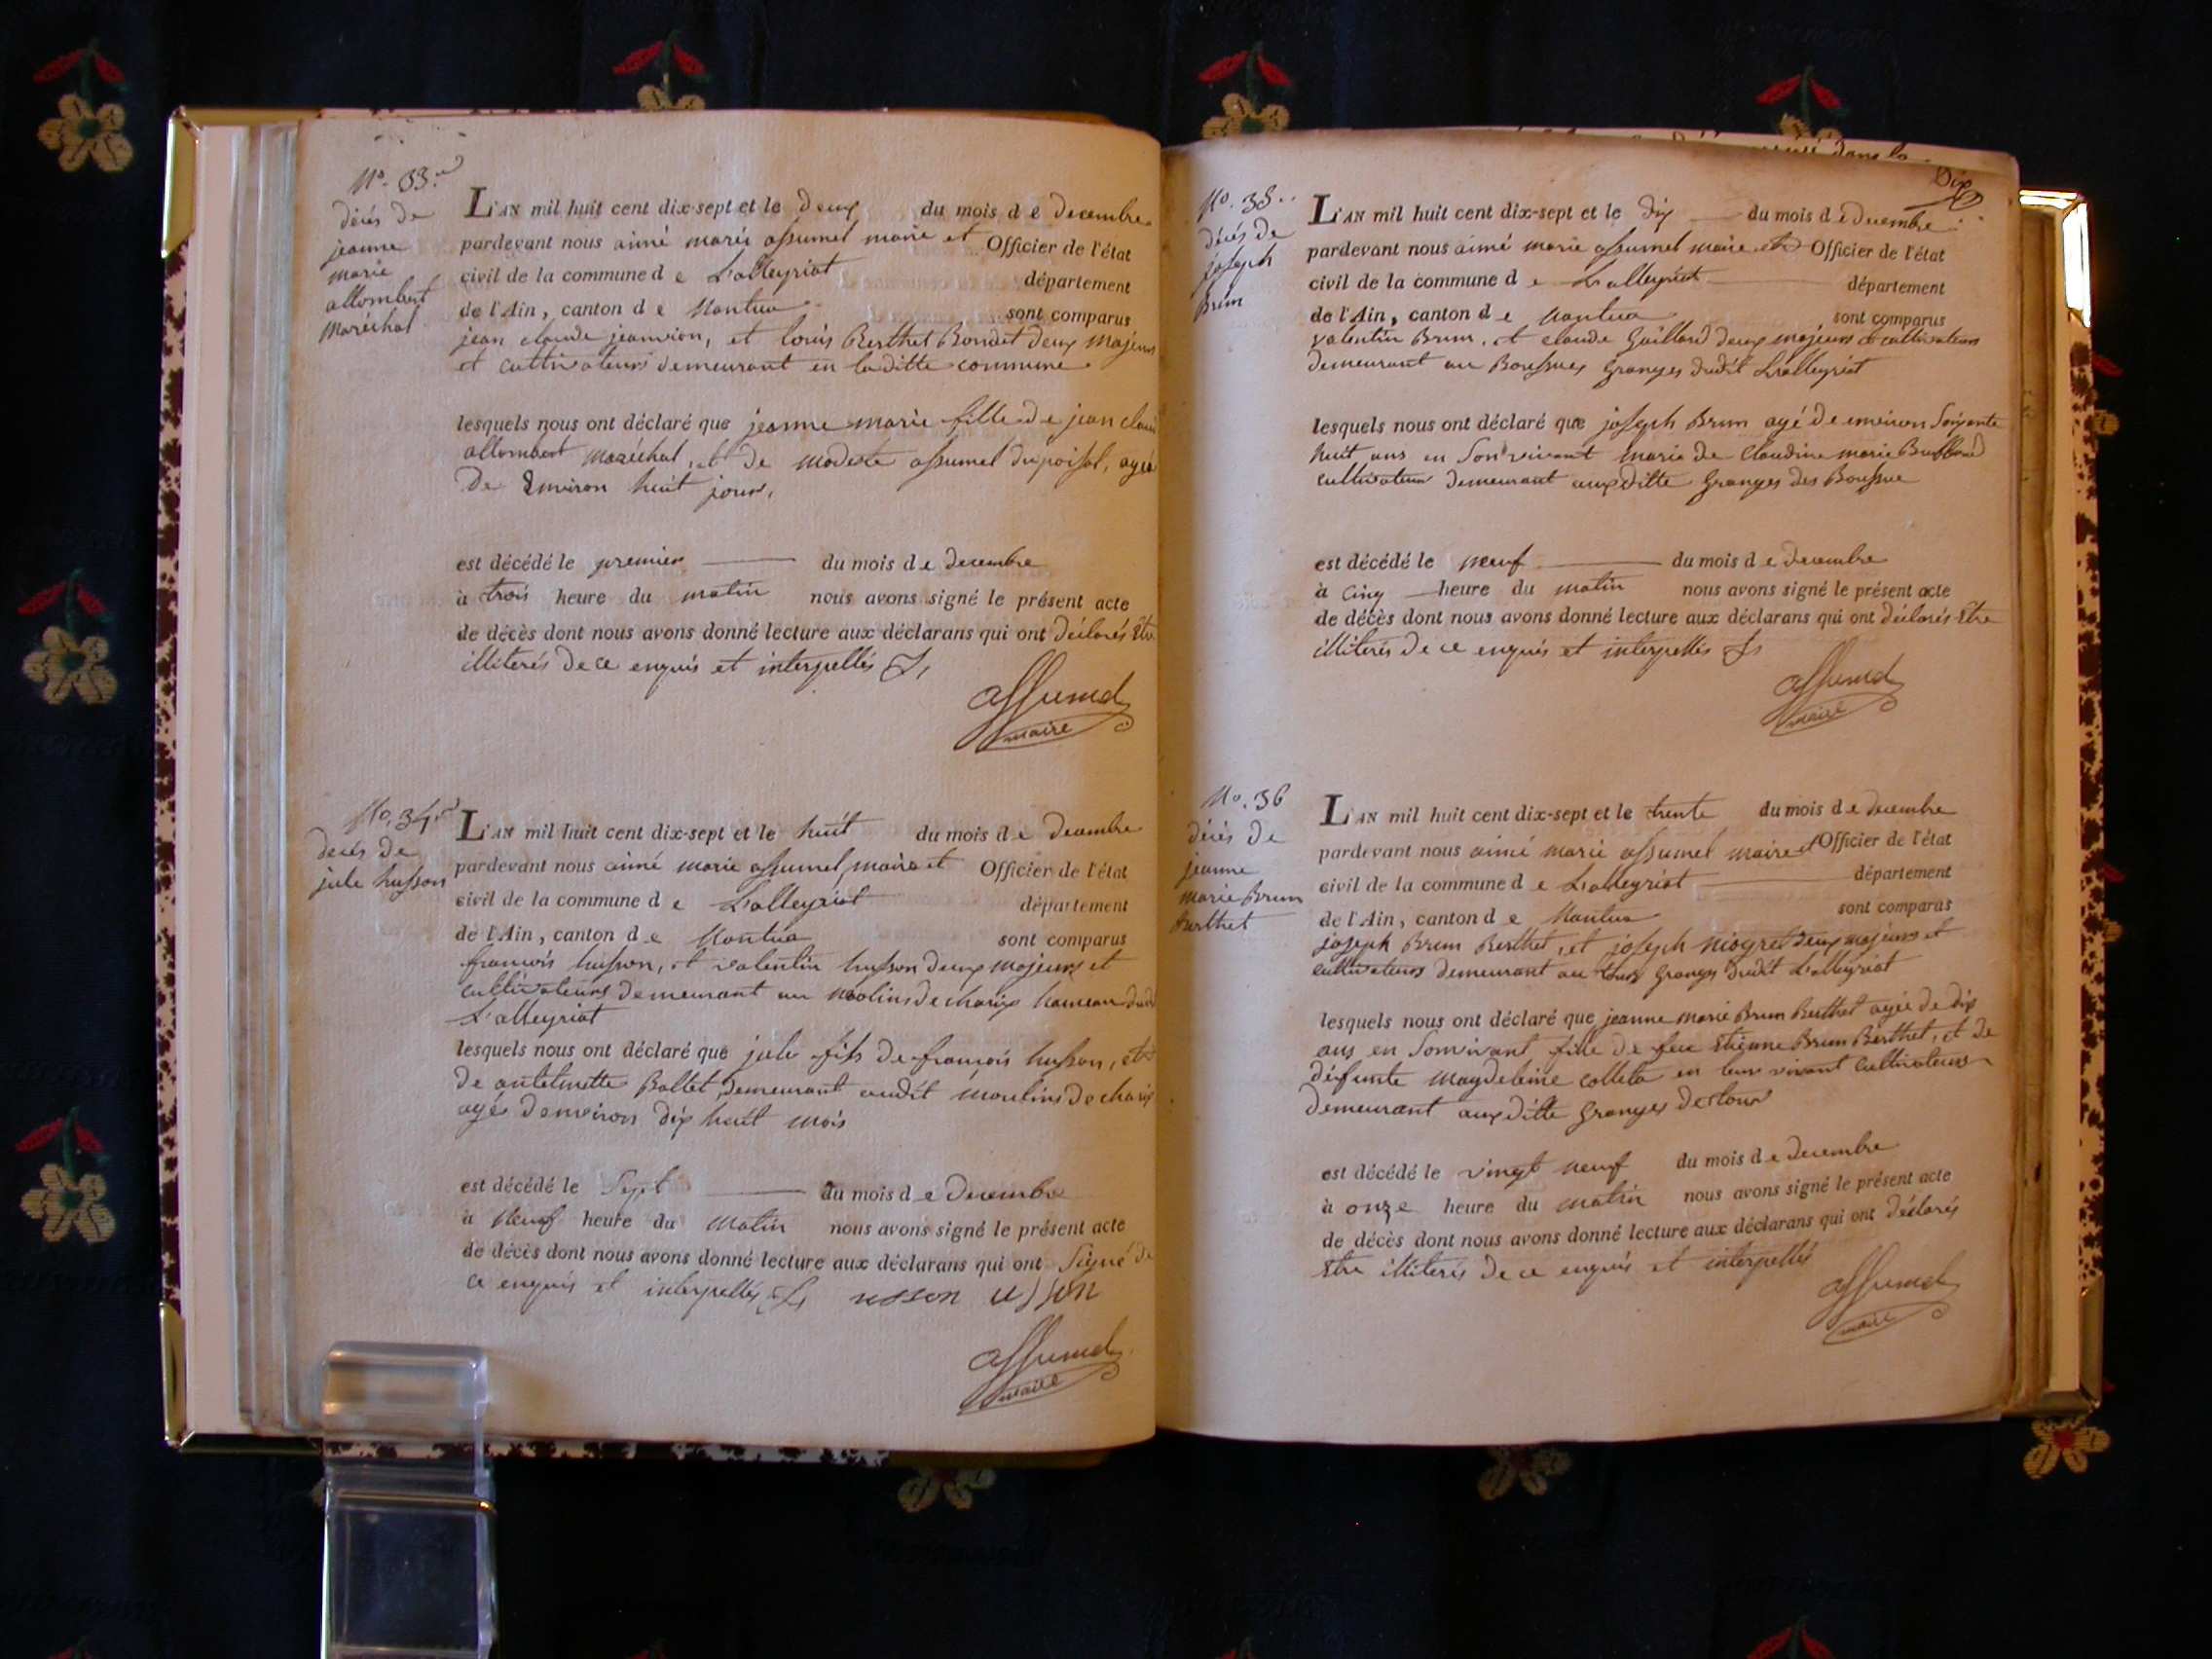 No. 33.
décés de
jeanne
marie
allombert
maréchal
L'AN mil huit cent dix-sept et le deux du mois de decembre
pardevant nous aimé marie assumel maire et Officier de l'état
civil de la commune de L'alleyriat département
de l'Ain, canton de Nantua sont comparus
jean claude jeannion, et louis Berthet Bondet deux majeurs
et cultivateurs demeurant en laditte commune
lesquels nous ont déclaré que jeanne marie fille de jean claude
allombert maréchal, et de modeste assumel dupoisat, agée
De Environ huit jours,
est décédé le premier du mois de decembre
à trois heure du matin nous avons signé le présent acte
de décès dont nous avons donné lecture aux déclarans qui ont déclarés Etre
illiterés de ce enquis et interpellés
assumel
maire
No. 34.
decés de
jule husson
L'AN mil huit cent dix-sept et le huit du mois de decembre
pardevant nous aimé marie assumel maire et Officier de l'état
civil de la commune de L'alleyriat département
de l'Ain, canton de Nantua sont comparus
françois husson, et valentin husson deux majeurs et
cultivateurs demeurant au moulins de charix hameau dudit
L'alleyriat
lesquels nous ont déclaré que jule fils de françois husson, et
de antelmette Ballet, demeurant audit moulins de charix
agés denviron dix huit mois
est décédé le Sept du mois de decembre
à Neuf heure du matin nous avons signé le présent acte
de décès dont nous avons donné lecture aux déclarans qui ont Signé de
ce enquis et interpellés usson usson
assumel
maire
Dix
No. 35.
décés de
joseph
Brun
L'AN mil huit cent dix-sept et le dix du mois de decembre
pardevant nous aimé marie assumel maire et Officier de l'état
civil de la commune de L'alleyriat département
de l'Ain, canton de Nantua sont comparus
valentin Brun, et claude Gaillard deux majeurs et cultivateurs
demeurant au Boussues Granges dudit L'alleyriat
lesquels nous ont déclaré que joseph Brun agé de environ Soixante
huit ans en Son vivant marie de Claudine marie
cultivateur demeurant auxditte Granges des Boussue
est décédé le neuf du mois de decembre
à cinq heure du matin nous avons signé le présent acte
de décès dont nous avons donné lecture aux déclarans qui ont déclarés Etre
illiterés de ce enquis et interpellés
assumel
maire
No. 36
décés de
jeanne
marie Brun
Berthet
L'AN mil huit cent dix-sept et le trente du mois de decembre
pardevant nous aimé marie assumel maire et Officier de l'état
civil de la commune de L'alleyriat département
de l'Ain, canton de Nantua sont comparus
joseph Brun Berthet, et joseph niogret deux majeurs et
cultivateurs demeurant au Granges dudit L'alleyriat
lesquels nous ont déclaré que jeanne marie Brun Berthet agée de dix
ans en Sonvivant fille de feu Etienne Brun Berthet, et de
défunte magdeleine colleta en leur vivant cultivateurs
demeurant auxditte Granges
est décédé le vingt neuf du mois de decembre
à onze heure du matin nous avons signé le présent acte
de décès dont nous avons donné lecture aux déclarans qui ont déclarés
Etre illiterés de ce enquis et interpellés
assumel
maire